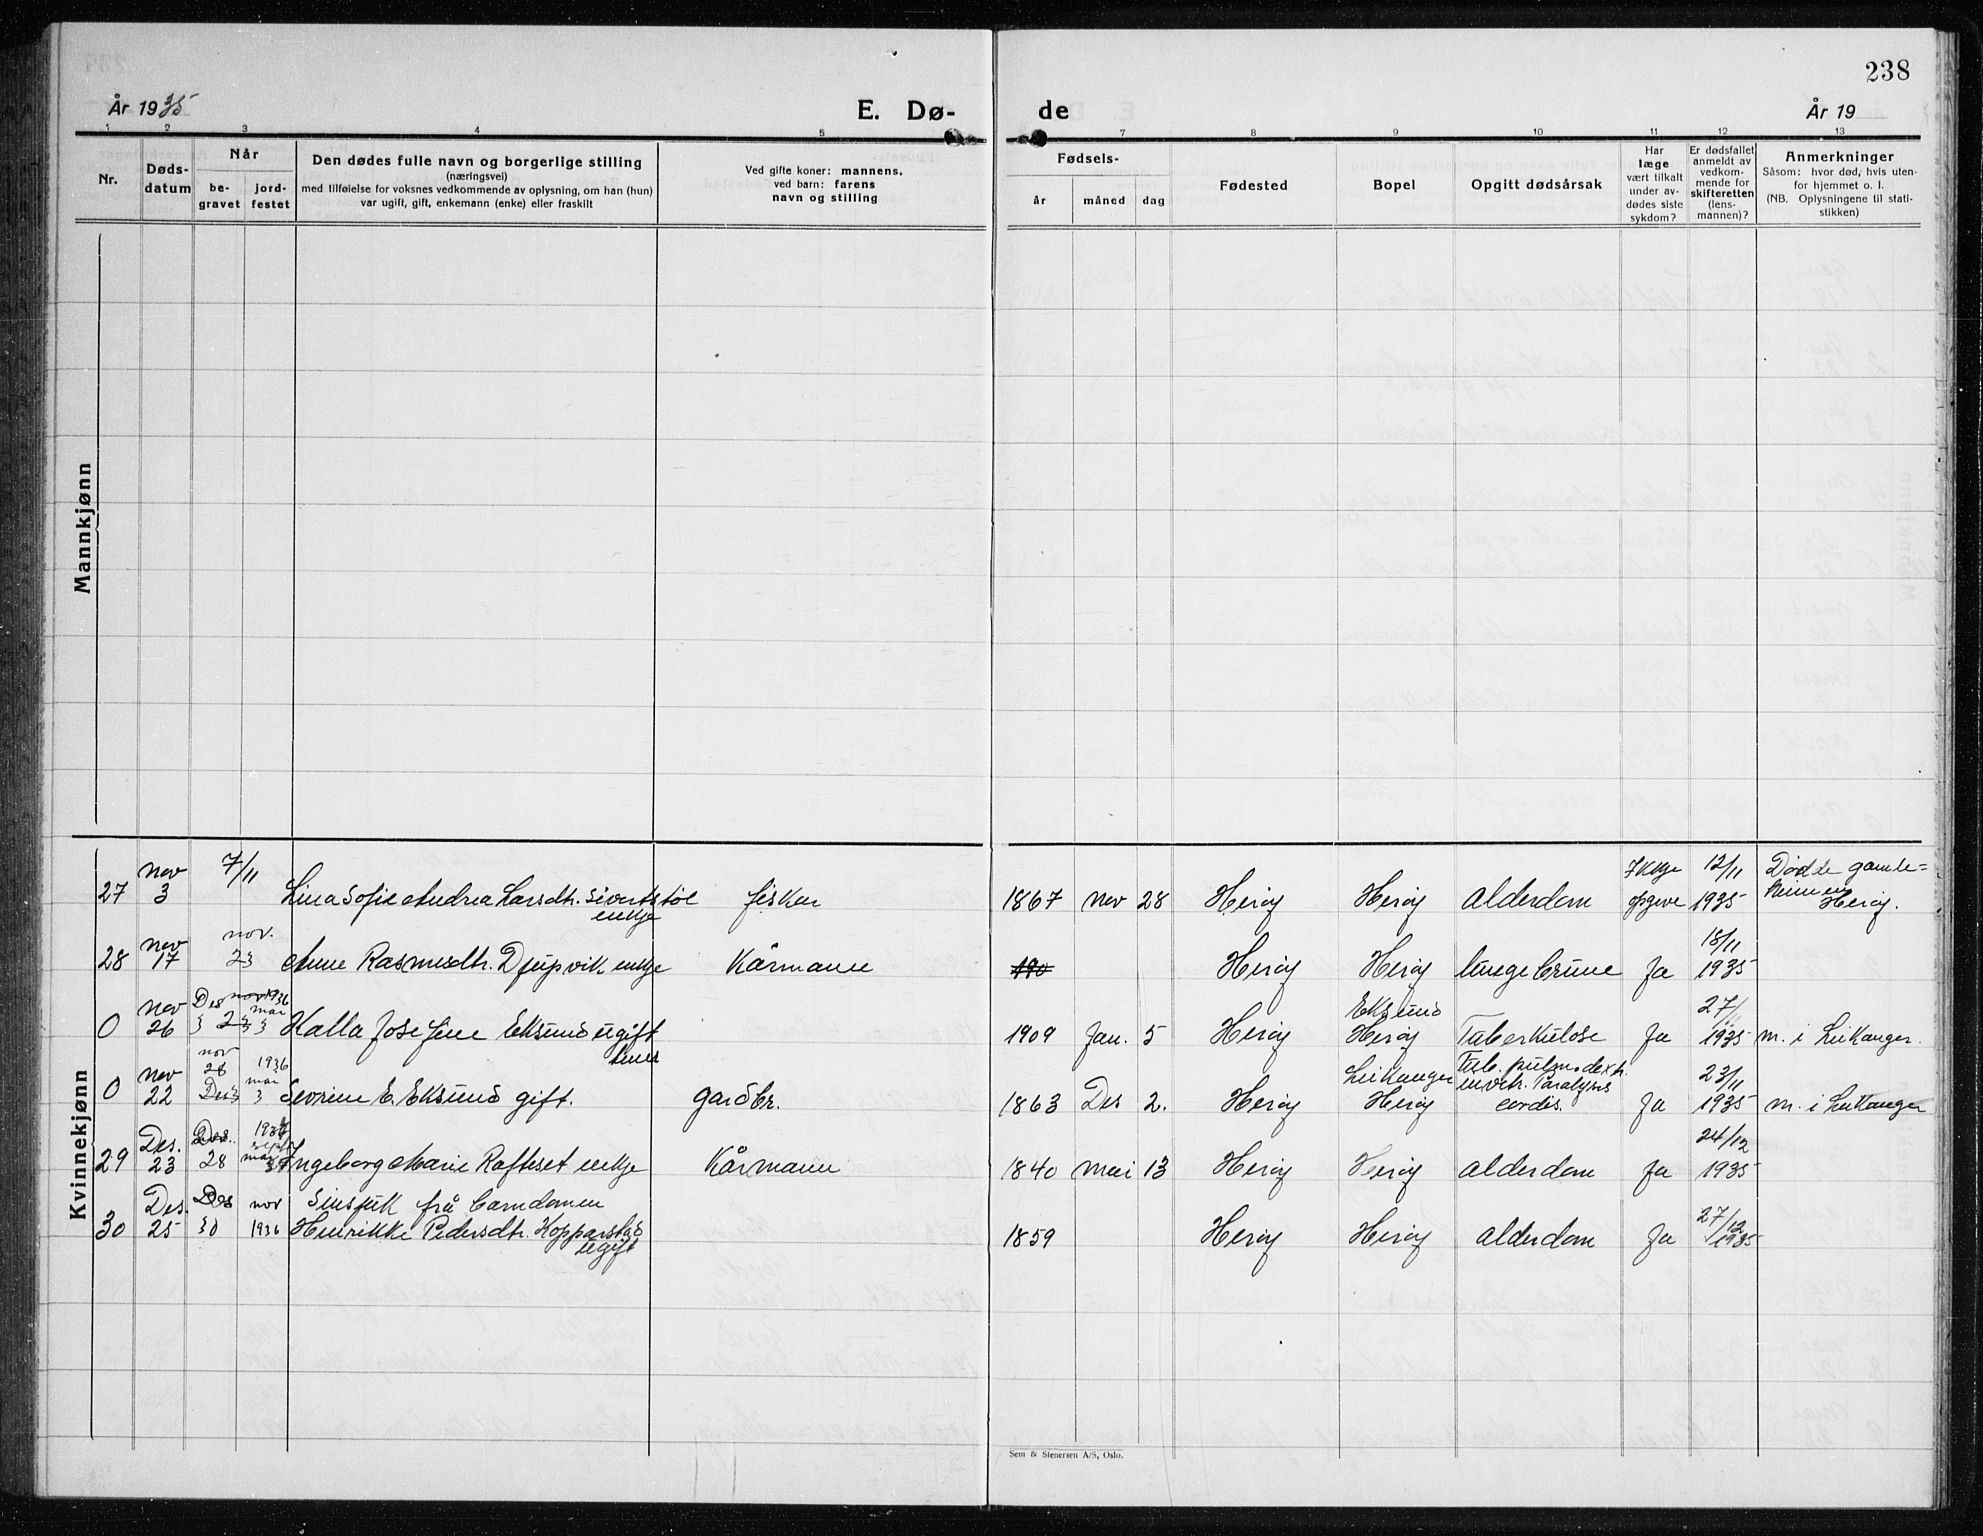 238
År 1935
E. Dø-
de
År 19
1 2 3 4 5 7 8 9 10 11 12 13
Nr.
Døds-
datum
Når
be-
gravet
jord-
festet
Den dødes fulle navn og borgerlige stilling
(næringsvei)
med tilføielse for voksnes vedkommende av oplysning, om han (hun)
var ugift, gift, enkemann (enke) eller fraskilt
Ved gifte koner: mannens,
ved barn: farens
navn og stilling
Fødsels-
år
måned
dag
Fødested
Bopel
Opgitt dødsårsak
Har
læge
vært tilkalt
under av-
dødes siste
sykdom?
Er dødsfallet
anmeldt av
vedkom-
mende for
skifteretten
(lens-
mannen)?
Anmerkninger
Såsom: hvor død, hvis uten-
for hjemmet o. l.
(NB. Oplysningene til stati-
stikken)
Mannkjønn
Kvinnekjønn
nov 7/11 Ikkje 12/11 Dødde gamle=
27 3 Lina Sofie Andrea Larsdtr. Sivertstøl fiskar 1867 nov 28 Herøy Herøy alderdom opgeve 1935 heimen
enkje Herøy.
nov nov. 18/11
28 17 23 Anne Rasmusdtr. Djupvik enkje Kårmann 190 Herøy Herøy lungebrune Ja 1935
nov Des nov 1936 mai Eksund 27/11
0 26 3 23 3 Kalla Josefine Eksund ugift 1909 Jan. 5 Herøy Herøy Tuberkulose Ja 1935 m. i Leikanger.
nov 28 1936 Leikanger Tub. pulm. dextr.
nov mai 23/11
0 22 Des 3 3 Sevrine E. Eksund gift. gardbr. 1863 Des 2. Herøy Herøy cordis. Ja 1935 m. i Leikanger
Des. Des. 24/12
29 23 28 Ingeborg Marie Rafteset enkje Kårmann 1840 mai 13 Herøy Herøy alderdom Ja 1935
Des. Des nov Sinsjuk frå barndomen 27/12
30 25 30 1936 Henrikke Pedersdtr. Kopparstad 1859 Herøy Herøy alderdom Ja 1935
ugift
Sem & Stenersen A/S, Oslo.